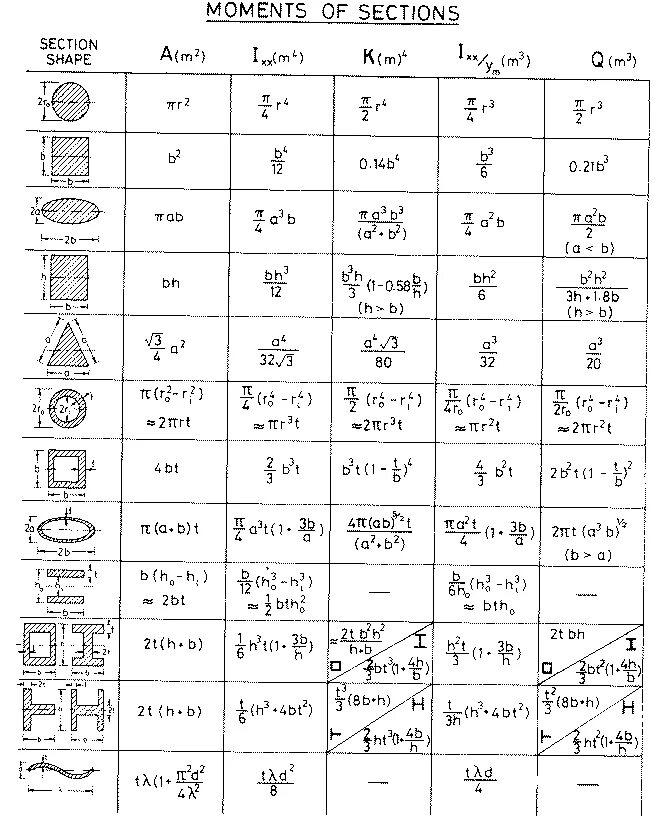 MOMENTS OF SECTIONS
SECTION SHAPE A(m²) Iₓₓ(m⁴) K(m)⁴ Iₓₓ/yₘ(m³) Q(m³)
2r₀ πr² π/4 r⁴ π/2 r⁴ π/4 r³ π/2 r³
b b b² b⁴/12 0.14b⁴ b³/6 0.21b³
2a 2b πab π/4 a³b πa³b³/(a²+b²) π/4 a²b πa²b/2 (a < b)
h b bh bh³/12 b³h/3 (1-0.58 b/h) (h > b) bh²/6 b²h²/(3h+1.8b) (h > b)
a a a √3/4 a² a⁴/32√3 a⁴√3/80 a³/32 a³/20
2r₀ 2rᵢ t π(r₀²-rᵢ²) π/4 (r₀⁴-rᵢ⁴) π/2 (r₀⁴-rᵢ⁴) π/4r₀ (r₀⁴-rᵢ⁴) π/2r₀ (r₀⁴-rᵢ⁴)
≈2πrt ≈πr³t ≈2πr³t ≈πr²t ≈2πr²t
b t b 4bt 2/3 b³t b³t(1-t/b)⁴ 4/3 b²t 2b²t(1-t/b)²
t 2a 2b π(a+b)t π/4 a³t(1+3b/a) 4π(ab)^5/2 t/(a²+b²) πa²t/4 (1+3b/a) 2πt(a³b)^1/2 (b > a)
h₀ hᵢ t b b(h₀-hᵢ) b/12 (h₀³-hᵢ³) — b/6h₀ (h₀³-hᵢ³) —
≈ 2bt ≈ 1/2 bth₀² ≈ bth₀
t h 2t b 2t(h+b) 1/6 h³t(1+3b/h) ≈2tb²h²/(h+b) 2/3 bt³(1+4h/b) h²t/3 (1+3b/h) 2tbh 2/3 bt²(1+4h/b)
2t t h b 2t 2t(h+b) t/6 (h³+4bt²) t³/3 (8b+h) 2/3 ht³(1+4b/h) t/3h (h³+4bt²) t²/3 (8b+h) 2/3 ht²(1+4b/h)
d t λ tλ(1+π²d²/4λ²) tλd²/8 — tλd/4 —